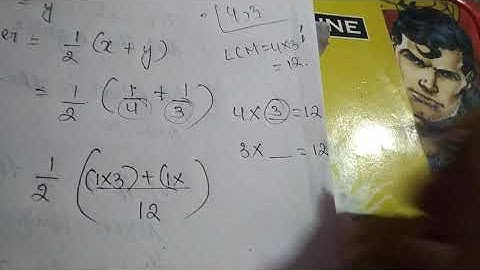 = y
= 1/2 (x + y)
= 1/2 (1/4 + 1/3)
1/2 ((1x3) + (1x / 12)
4,3
LCM = 4x3
= 12.
4 x 3 = 12
3 x _ = 12
INE